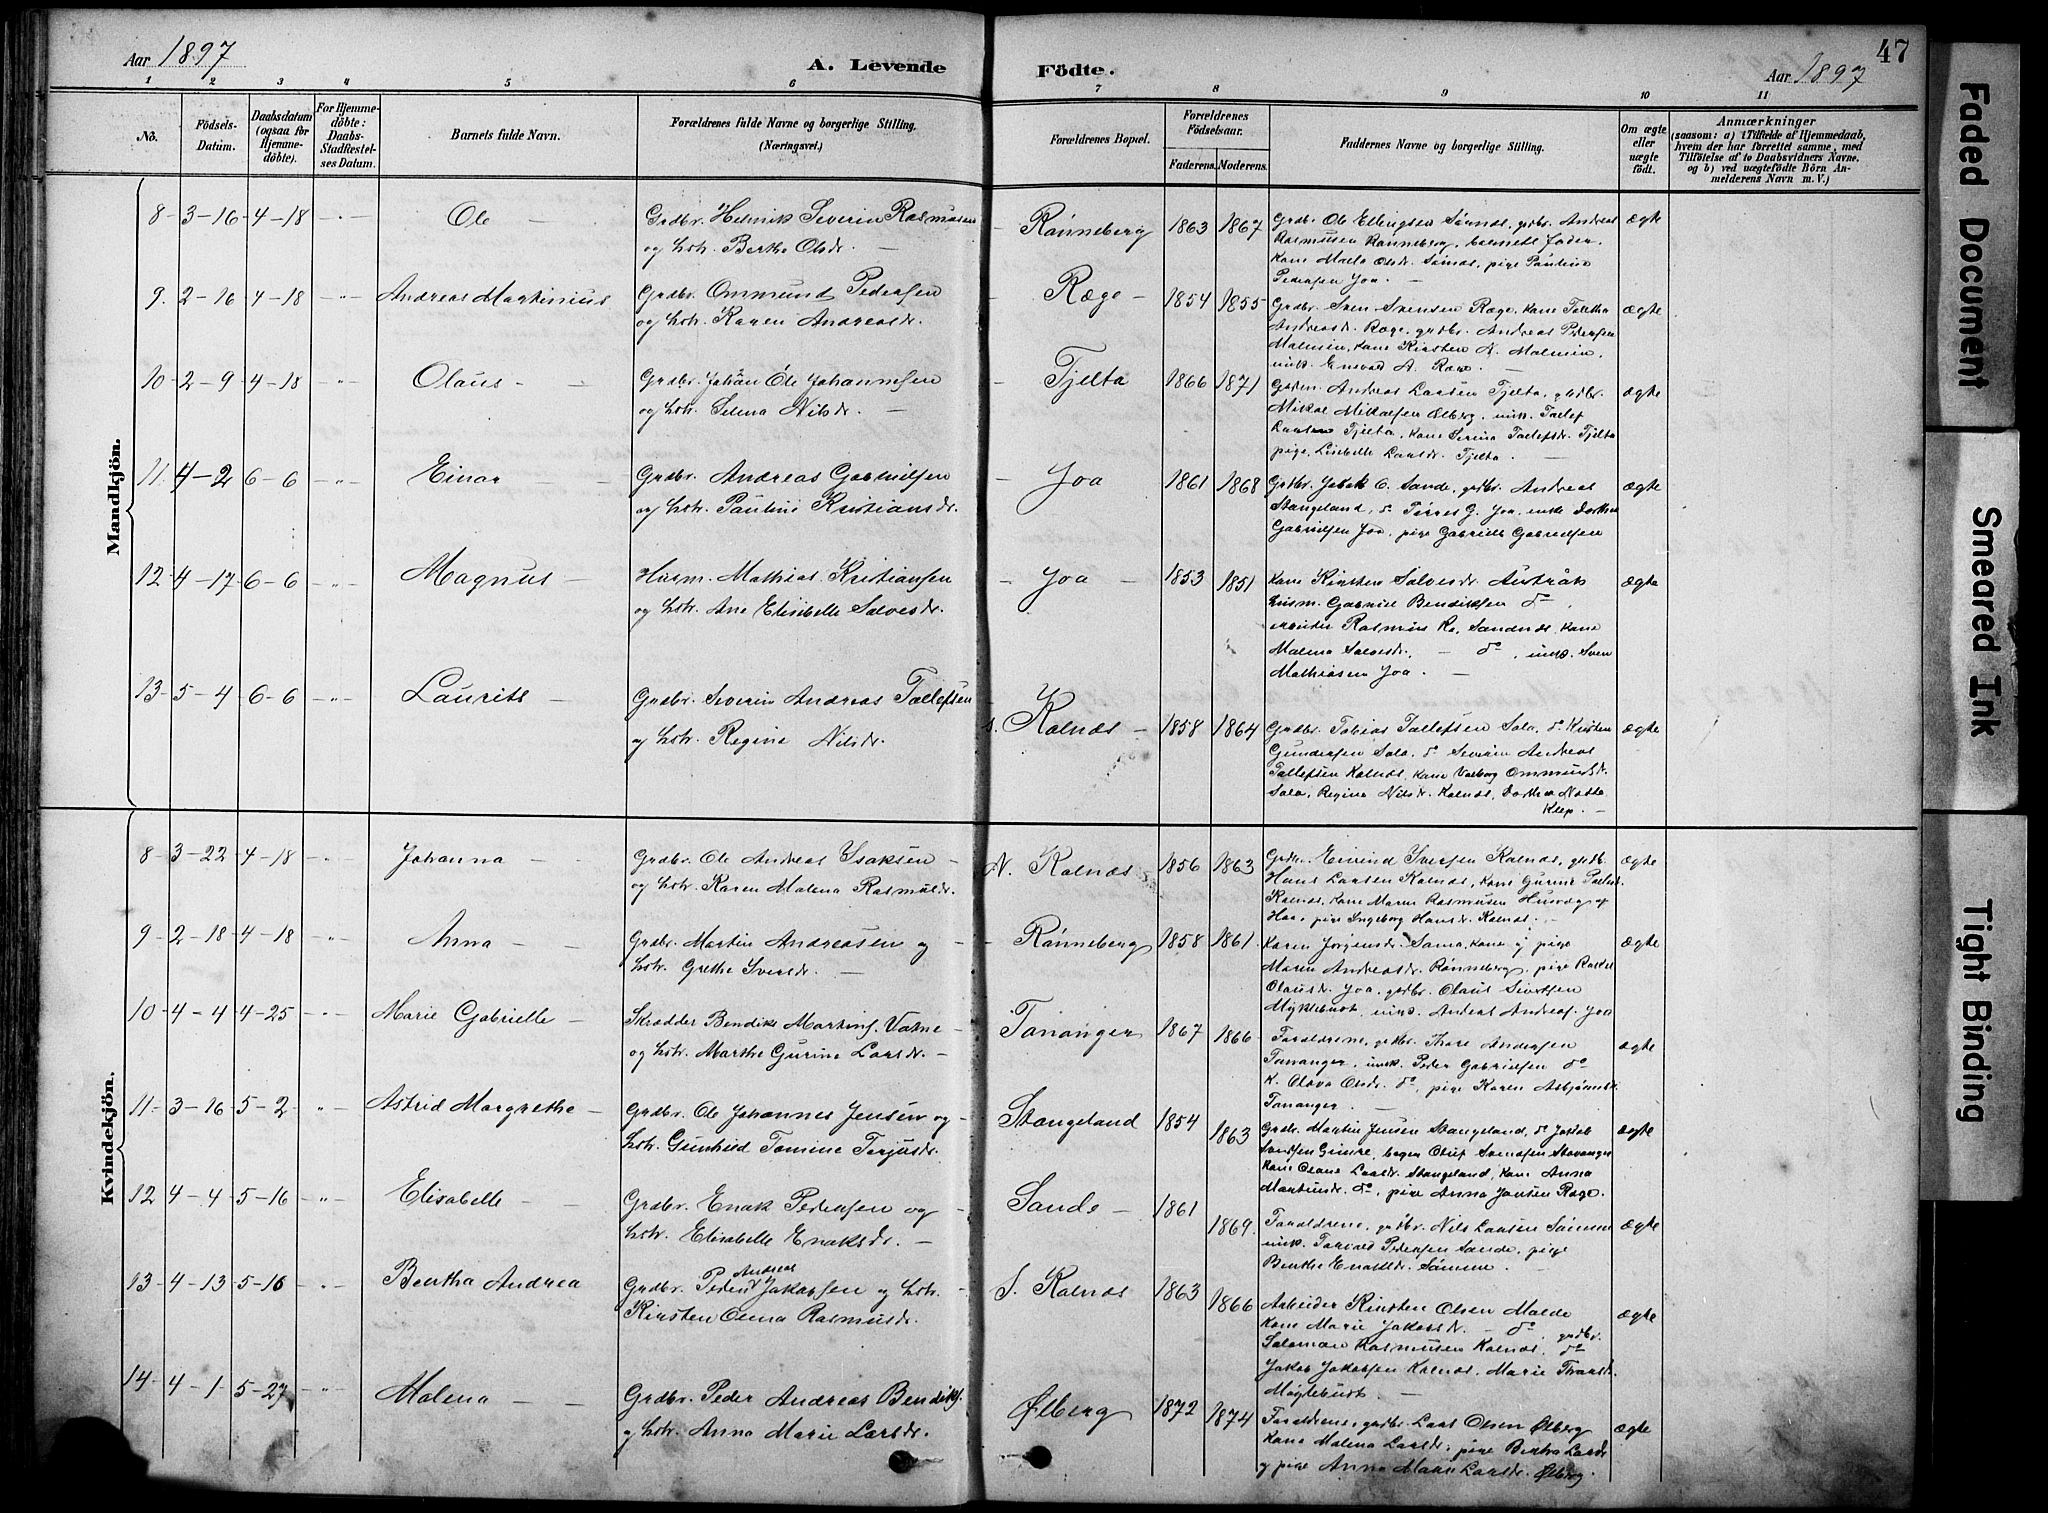 Aar 1897
A. Levende
Födte.
Aar 1897
47
1 2 3 4 5 6 7 8 9 10 11
No.
Födsels-
Datum.
Daabsdatum
(ogsaa for
Hjemme-
döbte).
For Hjemme-
döbte:
Daabs-
Stadfæstel-
ses Datum.
Barnets fulde Navn.
Forældrenes fulde Navne og borgerlige Stilling.
(Næringsvei.)
Forældrenes Bopæl.
Forældrenes
Födselsaar.
Faderens. Moderens.
Faddernes Navne og borgerlige Stilling.
Om ægte
eller
uægte
födt.
Anmærkninger
(saasom: a) i Tilfælde af Hjemmedaab,
hvem der har forrettet samme, med
Tilföielse af to Daabsvidners Navne,
og b) ved uægtefödte Börn An-
melderens Navn m. V.)
Mandkjön.
8 - 3 - 16 - 4 - 18 - " - Ole - Grdbr. Henrik Severin Rasmussen
og hstr. Berthe Olsdr. -
Rønneberg 1863 1867
Grdb. Ole Ellingsen Sømnes, grdbr. Andreas
Rasmussen Rønneberg, barnets fader,
kone Malla Olsdr. Sømes, pige Pauline
Pedersen Joa. -
ægte
9. 2 - 16 - 4 - 18 - " - Andreas Martinius Grdbr. Ommund Pedersen
og hstr. Karen Andreasdr.
Ræge - 1854 1855
Grdbr. Sven Svensen Ræge, kone Taletha
Andreasdr. Ræge, grdbr. Andreas Pedersen
Malmin, kone Kirsten A. Malmin,
ægte
10 - 2 - 9 - 4 - 18 - " - Olaus - Grdbr. Johan Ole Johannesen
og hstr. Selena Nilsdr. -
Tjelta 1866 1871
Andreas Larsen Tjelta, grdbr.
Mikal Mikalsen Ølberg, unk. Tollef
Larsen Tjelta, kone Serina Tollefsdr. Tjelta
pige Lisebelle Larsdr. Tjelta. -
ægte
11. 4 - 2 6 - 6 - " - Einar - Grdbr. Andreas Gabrielsen
og hstr. Pauline Kristiansdr.
Joa 1861 1868
Grdbr. Jakob C. Sande, grdbr. Andreas
Stangeland, do Torres G. Joa, enke Dorthea
Gabrielsen Joa, pige Gabrielle Gabrielsen
ægte
12 - 4 - 17 - 6 - 6 - " - Magnus - Husm. Mathias Kristiansen
og hstr. Ane Elisabelle Salvesdr.
Joa - 1853 1851
Kone Kirsten Salvesdr. Austråt
husm. Gabriel Bendiksen do,
arbeider Rasmus Ra. Sandnes, kone
Malena Salvesdr. - do, unk. Sven
Mathiasen Joa. -
ægte
13 - 5 - 4 - 6 - 6 - " - Laurits - Grdbr. Severin Andreas Tollefsen
og hstr. Regine Nilsdr.
S. Kolnes - 1858 1864
Grdbr. Tobias Tollefsen Sola, do Kirsten
Gundersen Sola, do Severin Andreas
Tollefsen Kolnes, kone Valborg Ommundsdr.
Sola, Regina Nilsdr. Kolnes, Dorthea
Klep. -
ægte
Kvindekjön.
8 - 3 - 22 - 4 - 18 - " - Johanna - - Grdbr. Ole Andreas Isaksen -
og hstr. Karen Malena Rasmusdr.
N. Kolnes 1856 1863
Eivind Iversen Kolnes, grdb.
Hans Larsen Kolnes, kone Gurine
Kolnes, kone Maren Rasmussen
Haa, pige Ingeborg Hansdr. Kolnes. -
ægte
9 - 2 - 18 - 4 - 18 - " - Anna - - Grdbr. Martin Andreasen og -
hstr. Grethe Iversdr. -
Rønneberg 1858 1861
Karen Jørgensdr. Søma, kone og pige
Maren Andreasdr. Rønneberg, pige Rakel
Olausdr. Joa, grdbr. Olaus Sivertsen
Myklebust, unk. Andreas Andreas. Joa
ægte
10 - 4 - 4 4 - 25 - " - Marie Gabrielle - Skrædder Bendik Martins. Vatne -
og hstr. Marthe Gurine Larsdr. -
Tananger 1867 1866
Forældrene, grdbr. Thore Andersen
Tananger, unk. Peder Gabrielsen do
K. Olava Olsdr. do, pige Karen Asbjørnsdr.
Tananger. -
ægte
11 - 3 - 16 5 - 2 " - Astrid Margrethe - Grdbr. Ole Johannes Jensen og -
hstr. Gunhild Tomine Terjusdr.
Stangeland 1854 1863
Grdbr. Martin Jensen Stangeland, do Jakob
Svensen Gimre, bager Oluf Svensen Stavanger
kone Oleane Larsdr. Stangeland, kone Anna
Martinsdr. do, pige Anna Jonsen Ræge.
ægte
12 4 - 4 5 - 16 - " - Elisabelle - Grdbr. Enok Pedersen og -
hstr. Elisabelle Enoksdr. -
Sande - 1861 1869
Forældrene, grdbr. Nils Larsen Sømme
unk. Torvald Pedersen Sande, pige
Berthe Enoksdr. Sømme. -
ægte
13 - 4 - 13 5 - 16 - " - Bertha Andrea Grdbr. Peder Andreas Jakobsen og hstr. -
Kirsten Olena Rasmusdr.
S. Kolnes 1863 1866
Arbeider Kirsten Olsen Malde
kone Marie Jakobsdr. - do, grdbr.
Salomon Rasmussen Kolnes, do
Jakob Jakobsen Kolnes, Marie
Myklebust. -
ægte
14 - 4 - 1 5 - 27 " - Malena - - Grdbr. Peder Andreas Bendiks.
og hstr. Anna Marie Larsdr.
Ølberg 1872 1874
Forældrene, grdbr. Lars Olsen Ølberg
kone Malena Larsdr., pige Bertha Larsdr.
og pige Anna Marie Larsdr. Ølberg.
ægte
Faded Document
Smeared Ink
Tight Binding